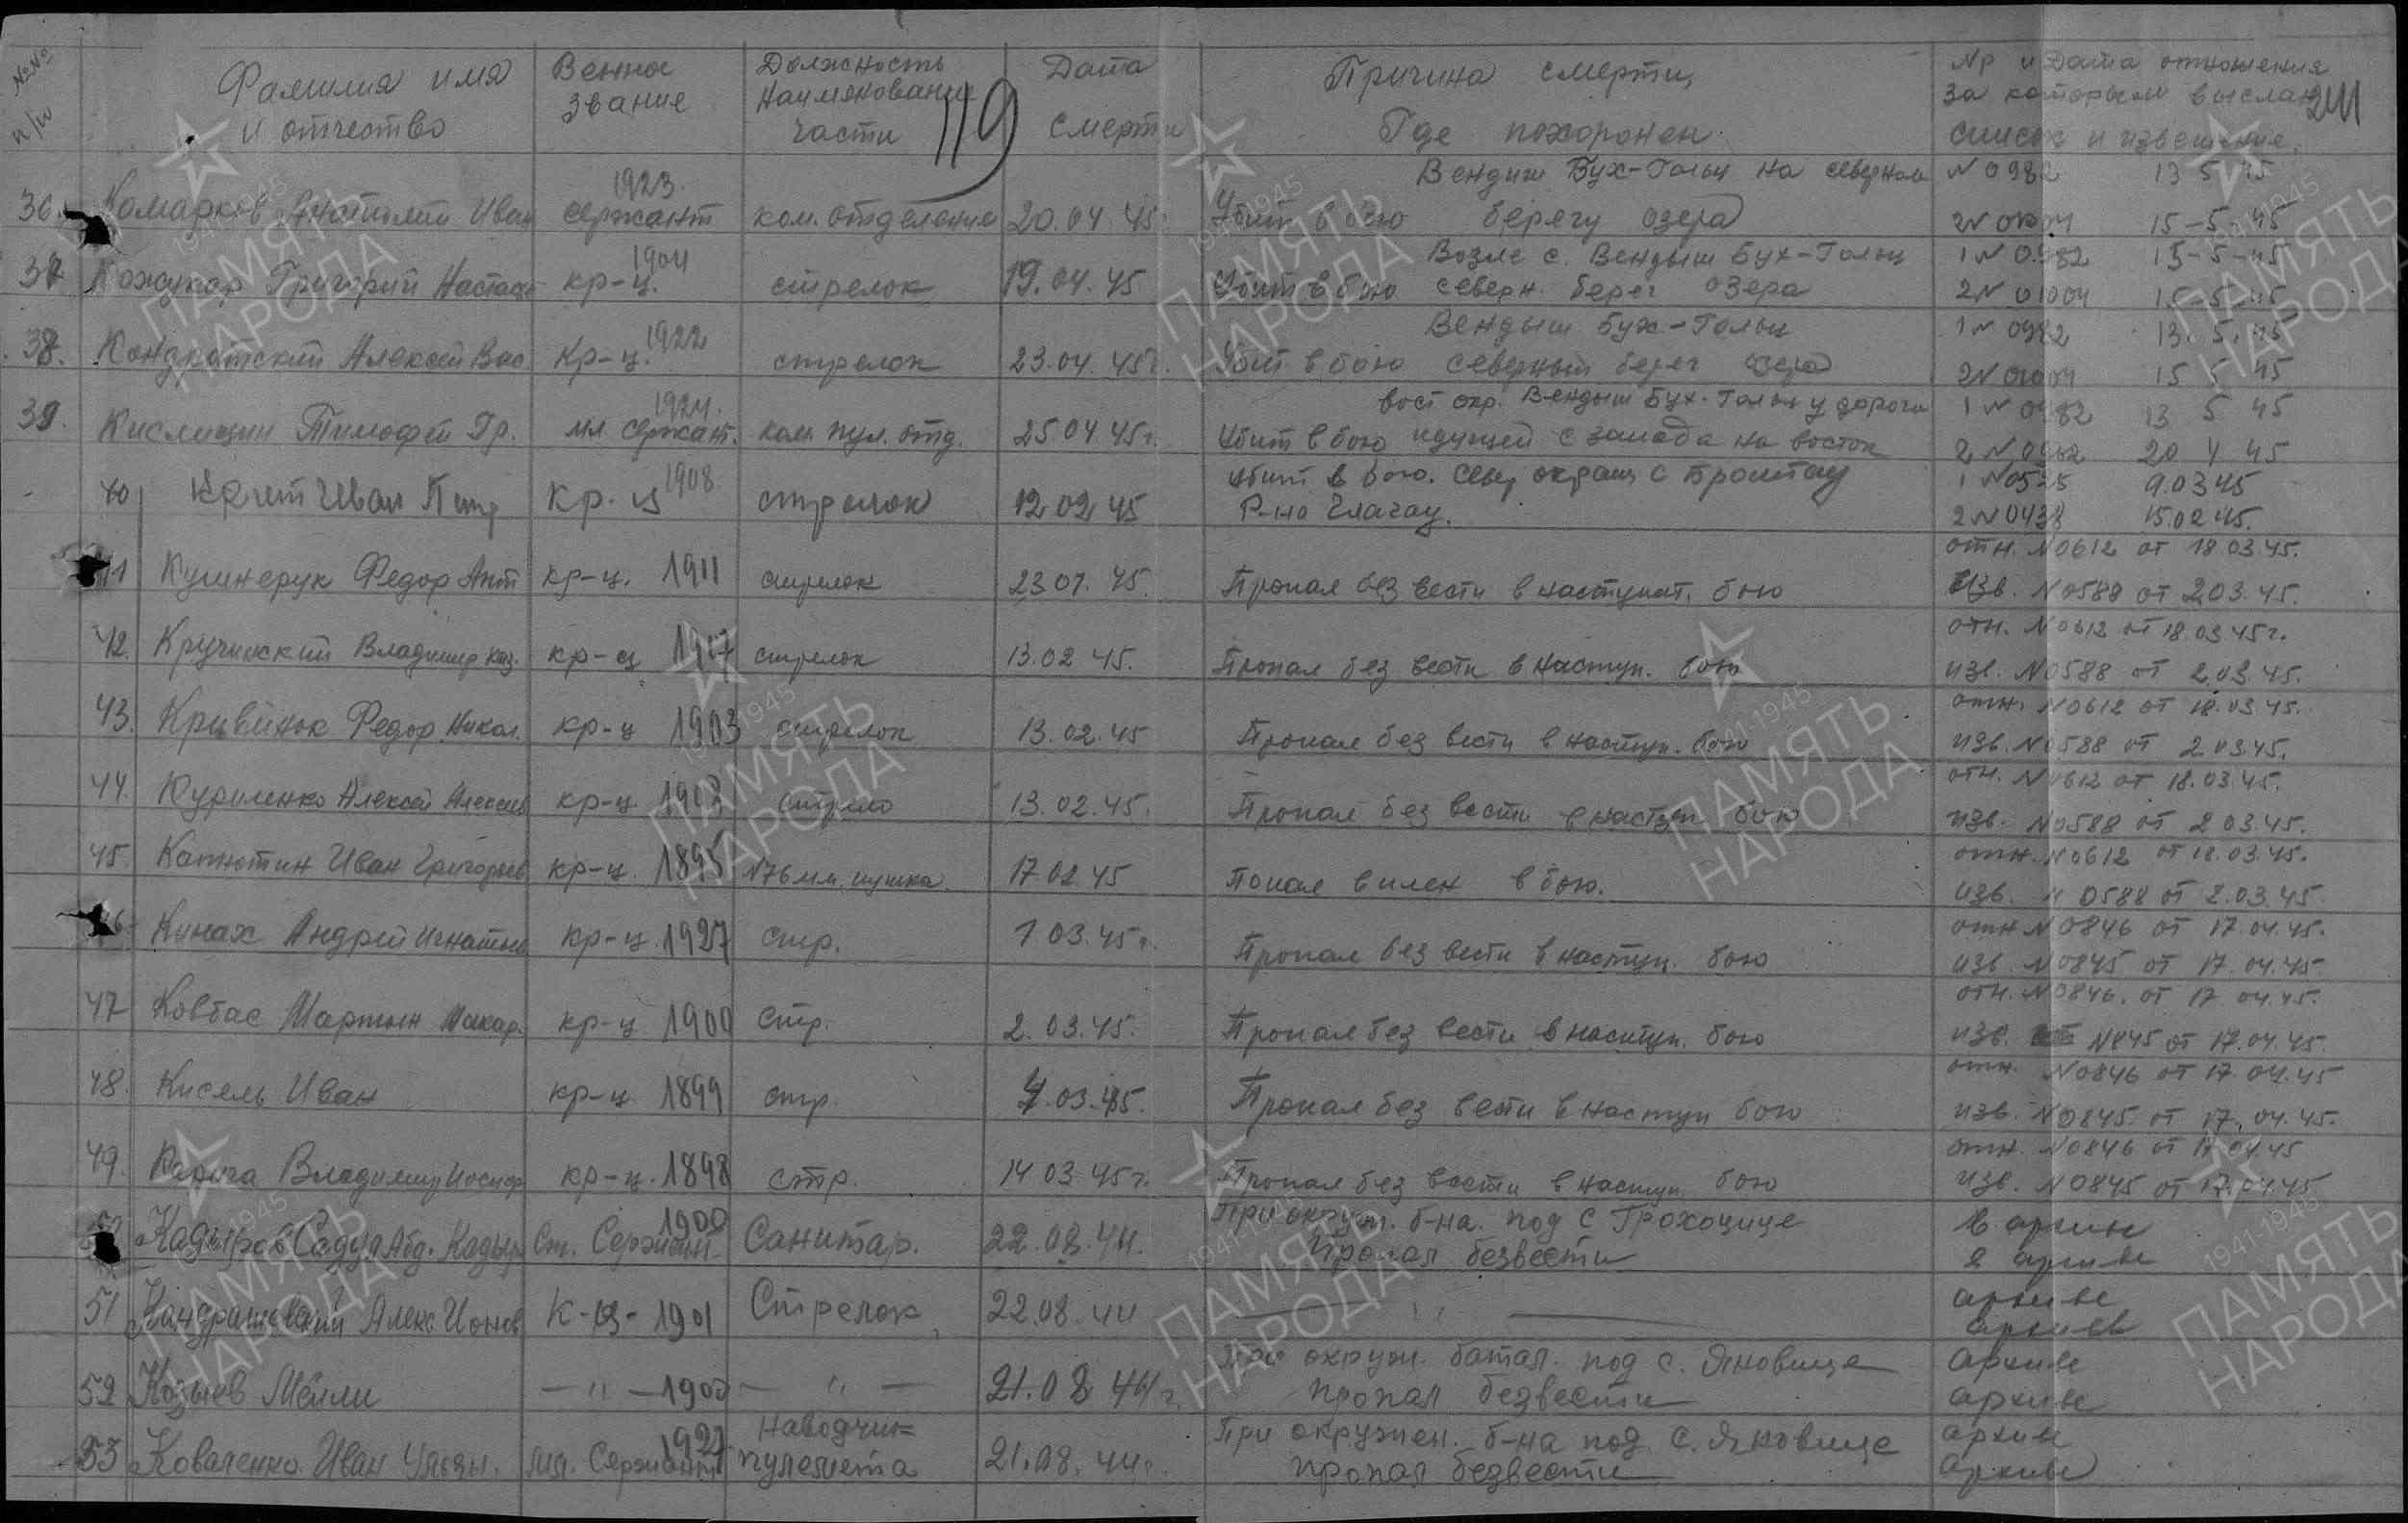 №№ п/п
Фамилия имя и отчество
Военное звание
Должность Наименование части
119
Дата смерти
Причина смерти, Где похоронен
Nр и Дата отношения за которым выслан список и извещение.
241
36. Комарков Анатолий Иван 1923. сержант ком. отделения 20.04.45 Убит в бою Вендиш Бух-Гольц на северном берегу озера N 0982 13 5 45
15-5-45
37 Кожухар Григорий 1904 кр-ц. стрелок 19.04.45 Убит в бою Возле с. Вендыш Бух-Гольц северн. берег озера 1 N 0982 13-5-45
2 N 01004 15-5-45
38. Кондратский Алексей Вас 1922 кр-ц. стрелок 23.04.45г. Убит в бою Вендыш Бух-Гольц северный берег озера 1 N 0982 13.5.45
2 N 01004 15 5 45
39. Кислицин Тимофей Гр. 1924. мл сержант. ком. пул. отд. 25 04 45г. Убит в бою вост окр. Вендыш Бух-Гольц у дороги идущей с запада на восток 1 N 0982 13 5 45
2 N 20 4 45
40 Иван Петр 1908 кр-ц стрелок 12 02 45 Убит в бою. Север окраин с Р-но Глагау. 1 N0525 9.03 45
2 N 0438 15.02 45.
41 Кушнерук Федор Ант кр-ц. 1911 стрелок 23 45. Пропал без вести в наступат. бою отн. N0612 от 18 03.45.
изв. N0588 от 2.03.45.
42. Кручинский Владимир Каз. кр-ц 1917 стрелок 13.02 45. Пропал без вести в наступ. бою отн. N0612 от 18.03.45г.
изв. N0588 от 2.03.45.
43. Кривенюк Федор Никол. кр-ц 1903 стрелок 13.02.45 Пропал без вести в наступ. бою отн. N0612 от 18.03.45.
изв. N0588 от 2 03.45.
44. Куриленко Алексей Алексеев кр-ц. стрелко 13.02.45. Пропал без вести в наступ. бою отн. N0612 от 18.03.45.
изв. N0588 от 2 03.45.
45 Катютин Иван Григорьев кр-ц. 1895 76 мм. пушка. 17 02 45 Попал в плен в бою. отн. N0612 от 18.03.45.
изв. N 0588 от 2.03.45.
46 Кинах Андрей Игнатьев кр-ц. 1927 стр. 1 03.45г. Пропал без вести в наступ. бою отн N0846 от 17.04.45.
изв N0845 от 17.04.45.
47 Ковбас Мартын Макар. кр-ц 1900 стр. 2.03.45. Пропал без вести в наступ. бою отн. N0846. от 17 04.45.
изв. N845 от 17.04.45.
48. Кисель Иван кр-ц 1899 стр. 03.45. Пропал без вести в наступ бою отн. N0846 от 17.04.45
изв. N0845. от 17.04.45.
49. Владимир Иосиф кр-ц. 1898 стр. 14 03 45г. Пропал без вести в наступ. бою отн. N0846 от 17.04.45
изв. N0845 от 17.04.45
50 Кадыров Садул Абд. Кадыр 1900 Ст. Сержант Санитар. 22.08.44. При окруж. б-на. под с Грохоцице
Пропал безвести
В архиве
я архиве
51 Кондрашевский Алекс Ионов К-ц- 1901 Стрелок 22.08.44 — " — архиве
архиве
52 Козыев Мелли — " — 1900 — " — 21.08 44г. При окруж. батал. под с. Яновице
пропал безвести
архиве
архиве
53 Коваленко Иван Ульян. 1927 мл. Сержант Наводчик пулемета 21.08.44г. При окружен. б-на под. с. Яновице
пропал безвести
архиве
архиве
1941-1945
ПАМЯТЬ
НАРОДА